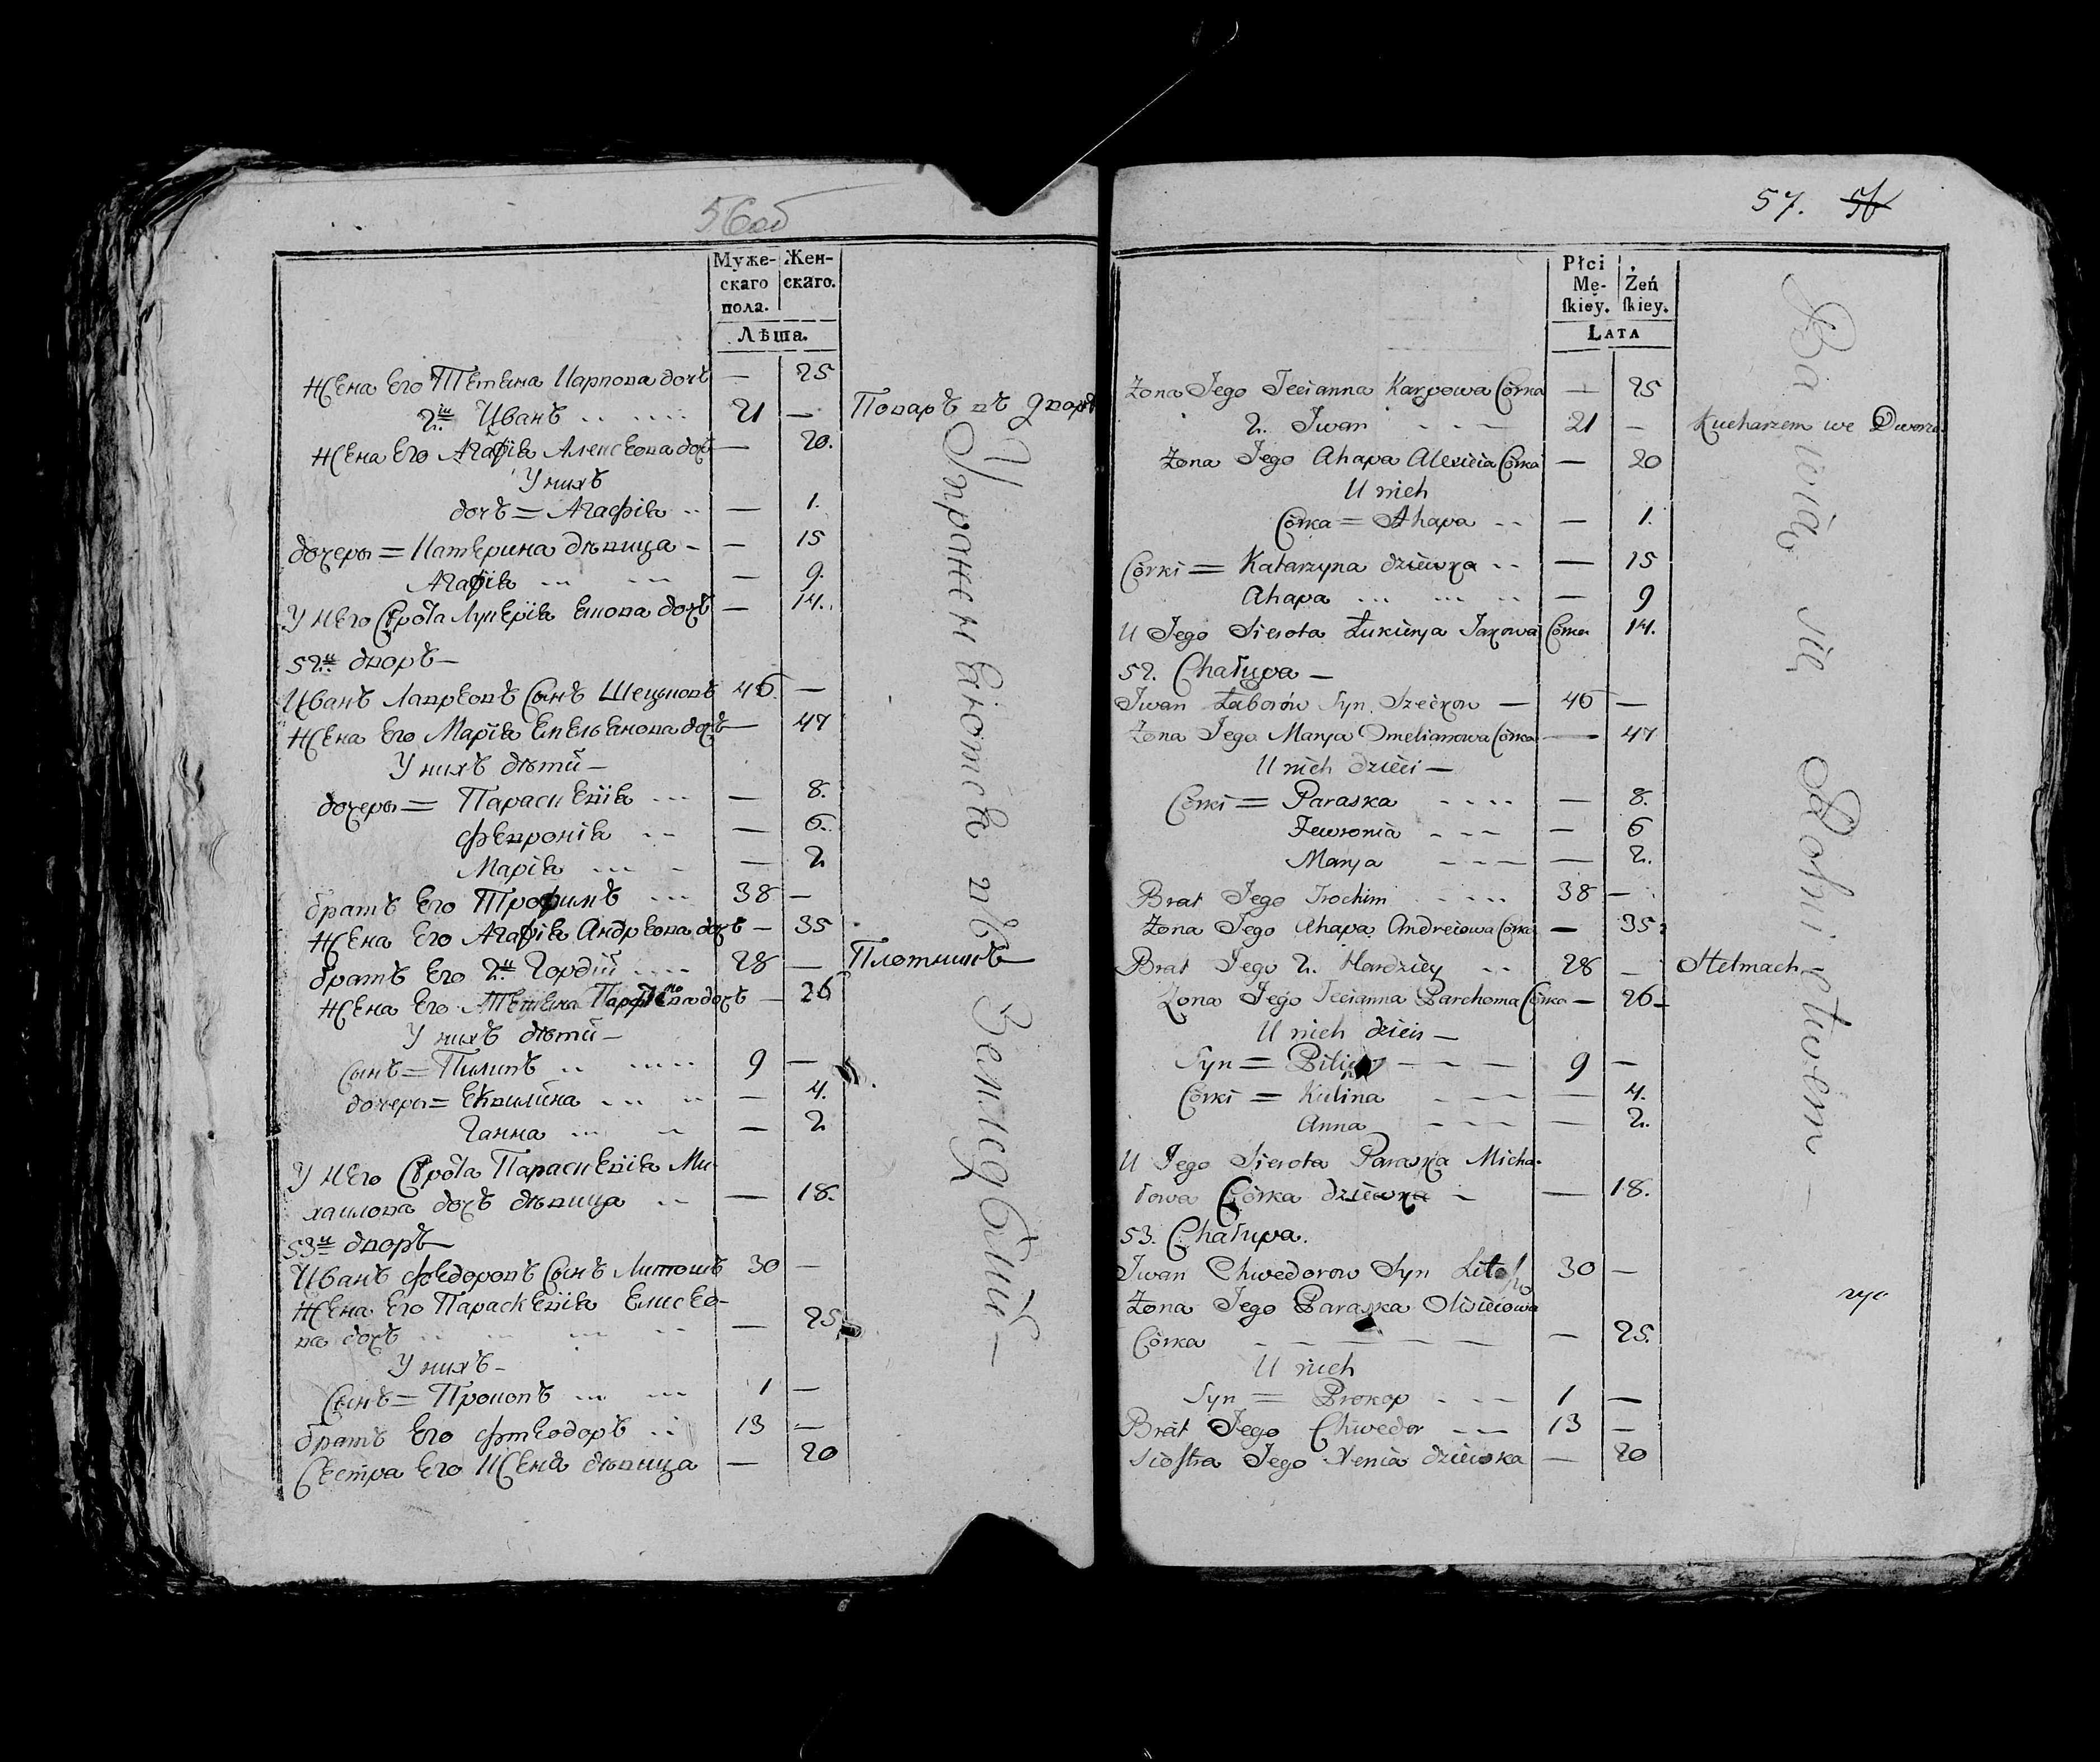 56об
Муже-
скаго
пола.
Жен-
скаго.
Лѣта.
Жена Его Тетяна Карпова дочь — 25
2й Иванъ 21 — Поваръ въ дворѣ
Жена Его Агафія Алексѣева доч — 20.
У нихъ
дочь = Агафія — 1.
дочеры = Катерина дѣвица — 15
Агафія — 9.
У Него Сѣрота Лукерія дочь — 14.
52й дворъ —
Иванъ Сынъ 46 —
Жена Его Марія Емельянова дочь — 47
У нихъ дѣти —
дочеры = Параскевія — 8.
Февронія — 6.
Марія — 2
братъ Его Трофимъ 38 —
Жена Его Агафія Андрѣева дочь — 35
братъ Его 2й Гордій 28 — Плотникъ
Жена Его Тетяна дочь — 26
У нихъ дѣти —
Сынъ = Пилипъ 9 —
дочеры = Акилина — 4.
Ганна — 2
У Него Сѣрота Параскевія Ми-
хаилова дочь дѣвица — 18.
53й дворъ
Иванъ Федоровъ Сынъ Литошъ 30 —
Жена Его Параскевія Елисѣе-
ва дочь — 25
У нихъ —
Сынъ = Прокопъ 1 —
братъ Его Фтеодоръ 13 —
Сестра Его Ксенія дѣвица — 20
Упражняются въ Земледѣліи —
57. 56
Płci
Mę-
ſkiey.
Żeń
ſkiey.
Lata
Żona Jego Jecianna Karpowa Córka — 25
2. Iwan 21 — Kucharzem we Dworze
Żona Jego Ahapa Alexieia Córka — 20
U nich
Córka = Ahapa — 1.
Córki = Katarzyna dziewka — 15
Ahapa — 9
U Jego Sierota Łukierja Córka 14.
52. Chałupa —
Iwan Syn — 46 —
Żona Jego Marya Omelianowa Córka — 47
U nich dzieci —
Córki = Paraska — 8.
Jewronia — 6
Marya — 2.
Brat Jego Trochim 38 —
Żona Jego Ahapa Andreiowa Córka — 35
Brat Jego 2. Hardziey 28 — Stelmach
Żona Jego Jecianna Parchoma Córka — 26
U nich dzieci —
Syn = Pilip — 9 —
Córki = Kulina — 4.
Anna — 2.
U Jego Sierota Paraska Micha-
łowa Córka dziewka — 18.
53. Chałupa.
Iwan Chwedorow Syn 30 —
Żona Jego Paraska Olisieiowa
Córka — 25.
U nich
Syn = Prokop 1 —
Brat Jego Chwedor 13 —
Siostra Jego Xenia dziewka — 20
Bawią się Rolnictwem —